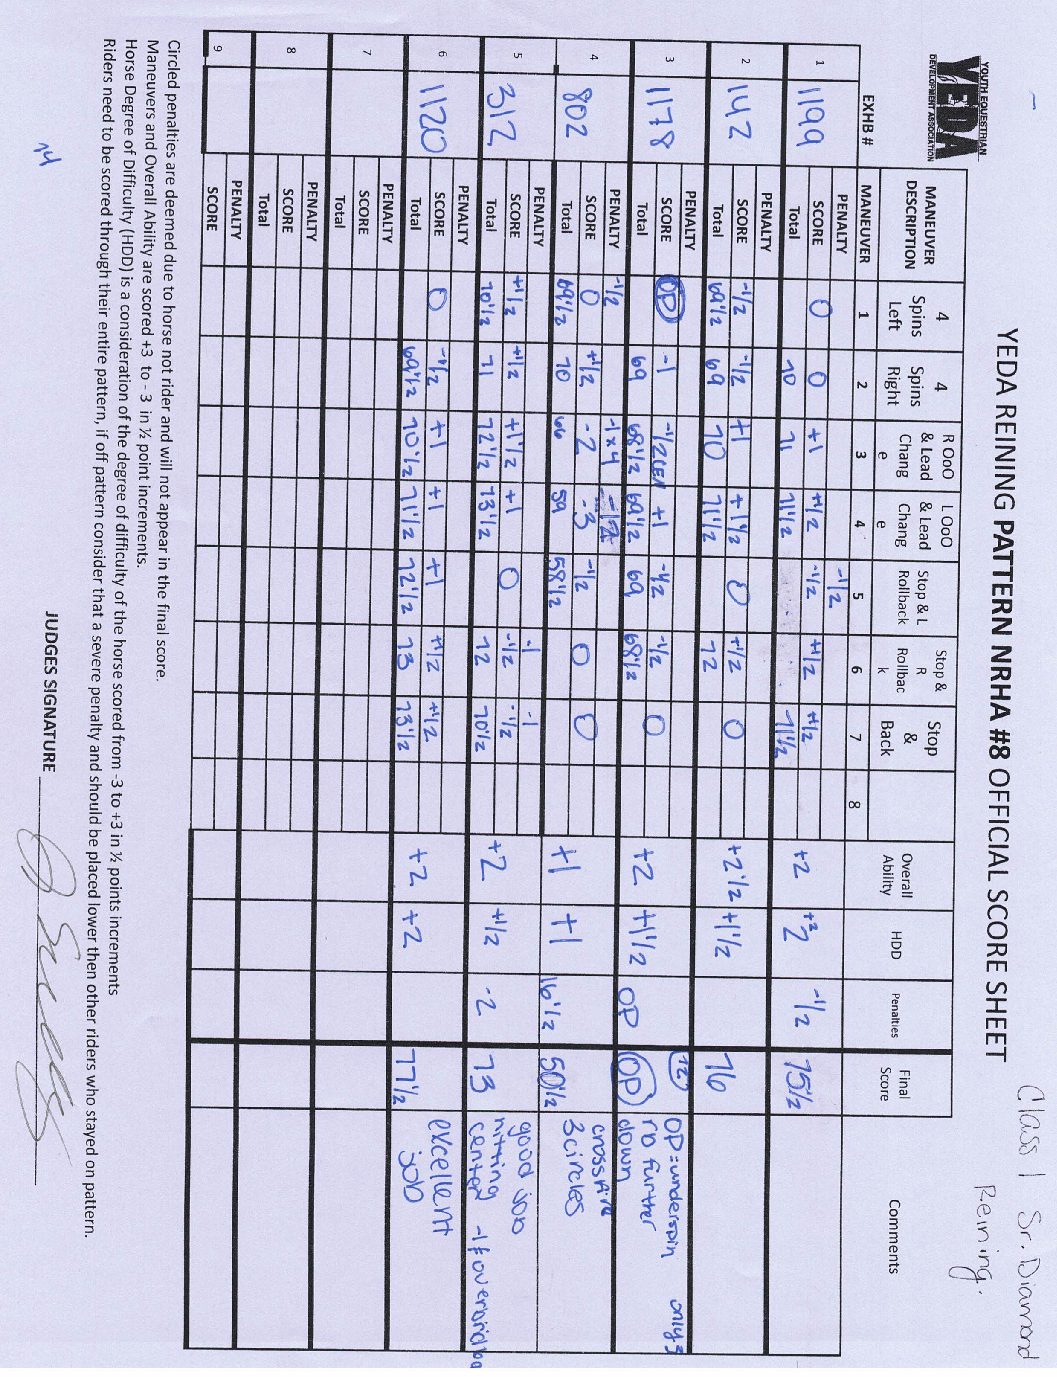 Class 1 Sr. Diamond
Reining.
YOUTH EQUESTRIAN
YEDA
DEVELOPMENT ASSOCIATION
YEDA REINING PATTERN NRHA #8 OFFICIAL SCORE SHEET
MANEUVER DESCRIPTION 4 Spins Left 4 Spins Right R OoO & Lead Chang e L OoO & Lead Chang e Stop & L Rollback Stop & R Rollbac k Stop & Back Overall Ability HDD Penalties Final Score Comments
EXHB # MANEUVER 1 2 3 4 5 6 7 8
1 1199
PENALTY -1/2
SCORE 0 0 +1 +1/2 -1/2 +1/2 +1/2 +2 +2 -1/2 75 1/2
Total 70 71 71 1/2 71 1/2
2 142
PENALTY
SCORE -1/2 -1/2 +1 +1 1/2 0 +1/2 0 +2 1/2 +1 1/2 76
Total 69 1/2 69 70 71 1/2 72
3 1178
PENALTY 72 OP=underspin only 3
SCORE OP -1 -1/2 CEN +1 -1/2 -1/2 0 +2 +1 1/2 OP OP rb further
Total 69 68 1/2 69 1/2 69 68 1/2 down
4 802
PENALTY -1/2 -1x4 crossfire
SCORE 0 +1/2 -2 -3 -1/2 0 0 +1 +1 16 1/2 50 1/2 3 circles
Total 69 1/2 70 66 59 58 1/2
5 312
PENALTY -1 -1 good job
SCORE +1/2 +1/2 +1 1/2 +1 0 -1/2 -1/2 +2 +1/2 -2 73 hitting
Total 70 1/2 71 72 1/2 73 1/2 72 70 1/2 center
6 1120
PENALTY excellent
SCORE 0 -1/2 +1 +1 +1 +1/2 +1/2 +2 +2 77 1/2 job
Total 69 1/2 70 1/2 71 1/2 72 1/2 73 73 1/2
7
PENALTY
SCORE
Total
8
PENALTY
SCORE
Total
9
PENALTY
SCORE
Circled penalties are deemed due to horse not rider and will not appear in the final score.
Maneuvers and Overall Ability are scored +3 to - 3 in ½ point increments.
Horse Degree of Difficulty (HDD) is a consideration of the degree of difficulty of the horse scored from -3 to +3 in ½ points increments
Riders need to be scored through their entire pattern, if off pattern consider that a severe penalty and should be placed lower then other riders who stayed on pattern.
JUDGES SIGNATURE